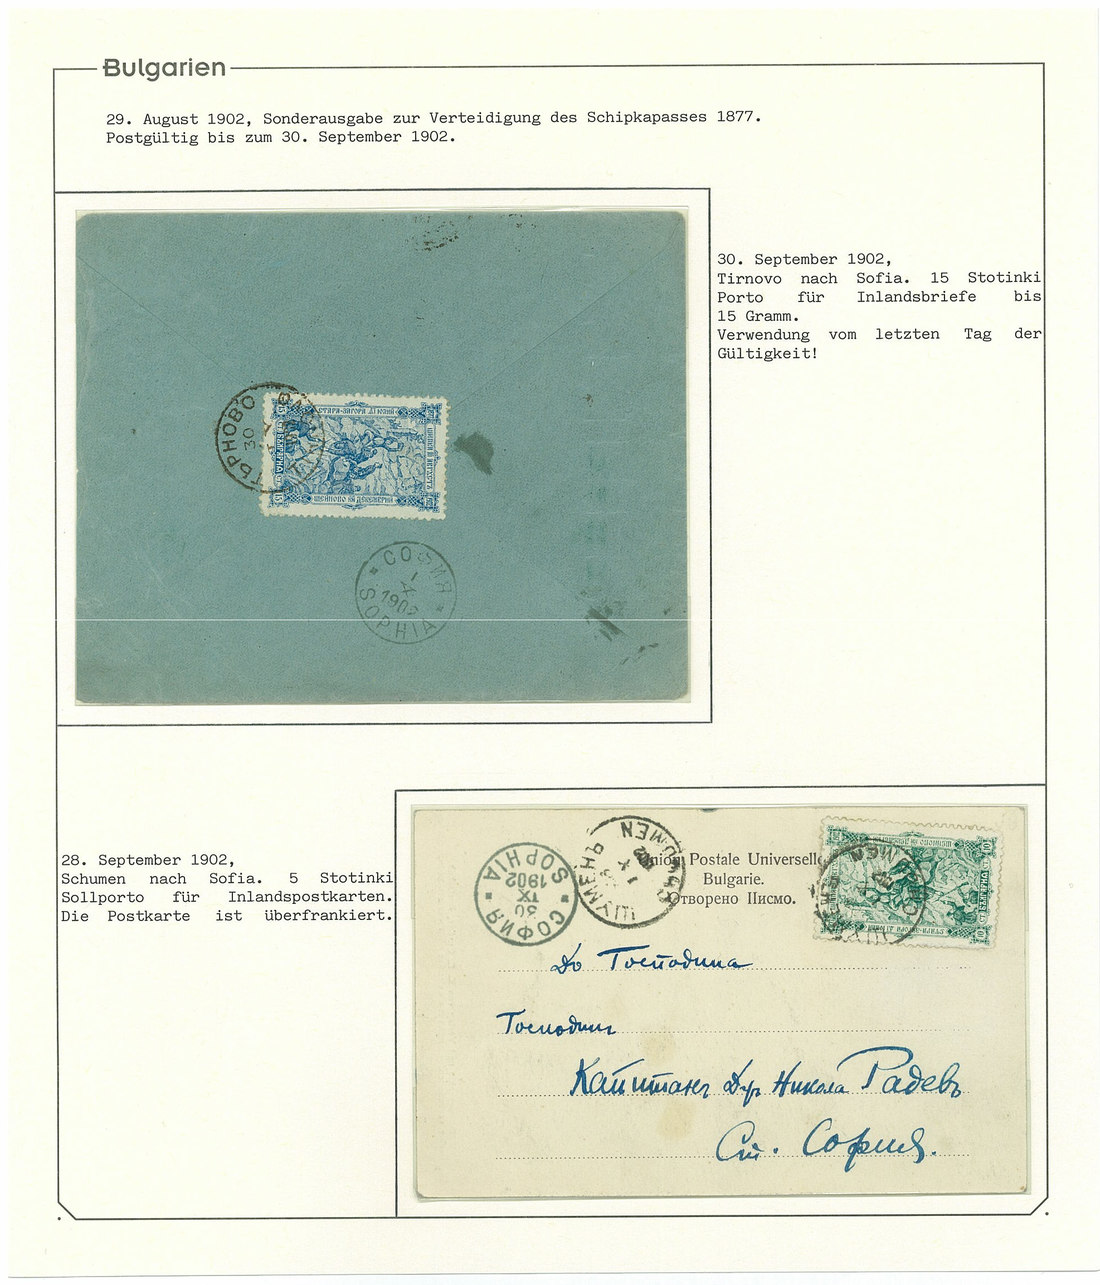 Bulgarien
29. August 1902, Sonderausgabe zur Verteidigung des Schipkapasses 1877.
Postgültig bis zum 30. September 1902.
30. September 1902,
Tirnovo nach Sofia. 15 Stotinki
Porto für Inlandsbriefe bis
15 Gramm.
Verwendung vom letzten Tag der
Gültigkeit!
СТАРА-ЗАГОРА
ШЕЙНОВО
ДЕКЕМВРИЙ
ТЪРНОВО
30
СОФИЯ
1902
SOPHIA
28. September 1902,
Schumen nach Sofia. 5 Stotinki
Sollporto für Inlandspostkarten.
Die Postkarte ist überfrankiert.
СОФИЯ
30
IX
1902
SOPHIA
Union Postale Universelle
Bulgarie.
Отворено Писмо.
До Господина
Господин
Капитанъ Д-ръ Никола Радевъ
Ст. София.